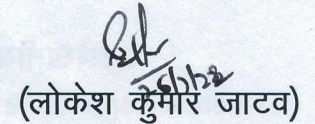 (लोकेश कुमार जाटव)